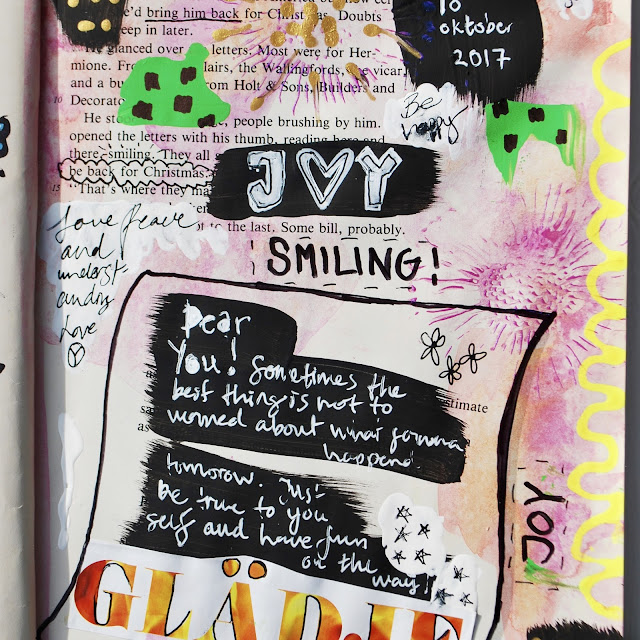 he'd bring him back for Christmas. Doubts
keep in later.
He glanced over letters. Most were for Her-
mione. lairs, the Wallingfords, vicar,
and a from Holt & Sons, Builders and
Decorato
He people brushing by him.
opened the letters with his thumb, reading here and
there smiling. They all
be back for Christmas.
"That's where they
to the last. Some bill, probably.
10
15
10
oktober
2017
Be
happy
JOY
SMILING!
love peace
and
underst-
anding
love
Dear
You! Sometimes the
best thing is not to
worried about what gonna
happend
estimate
sa
as
tomorrow. Just
be true to you
self and have fun
on the
way!
JOY
GLÄDJE